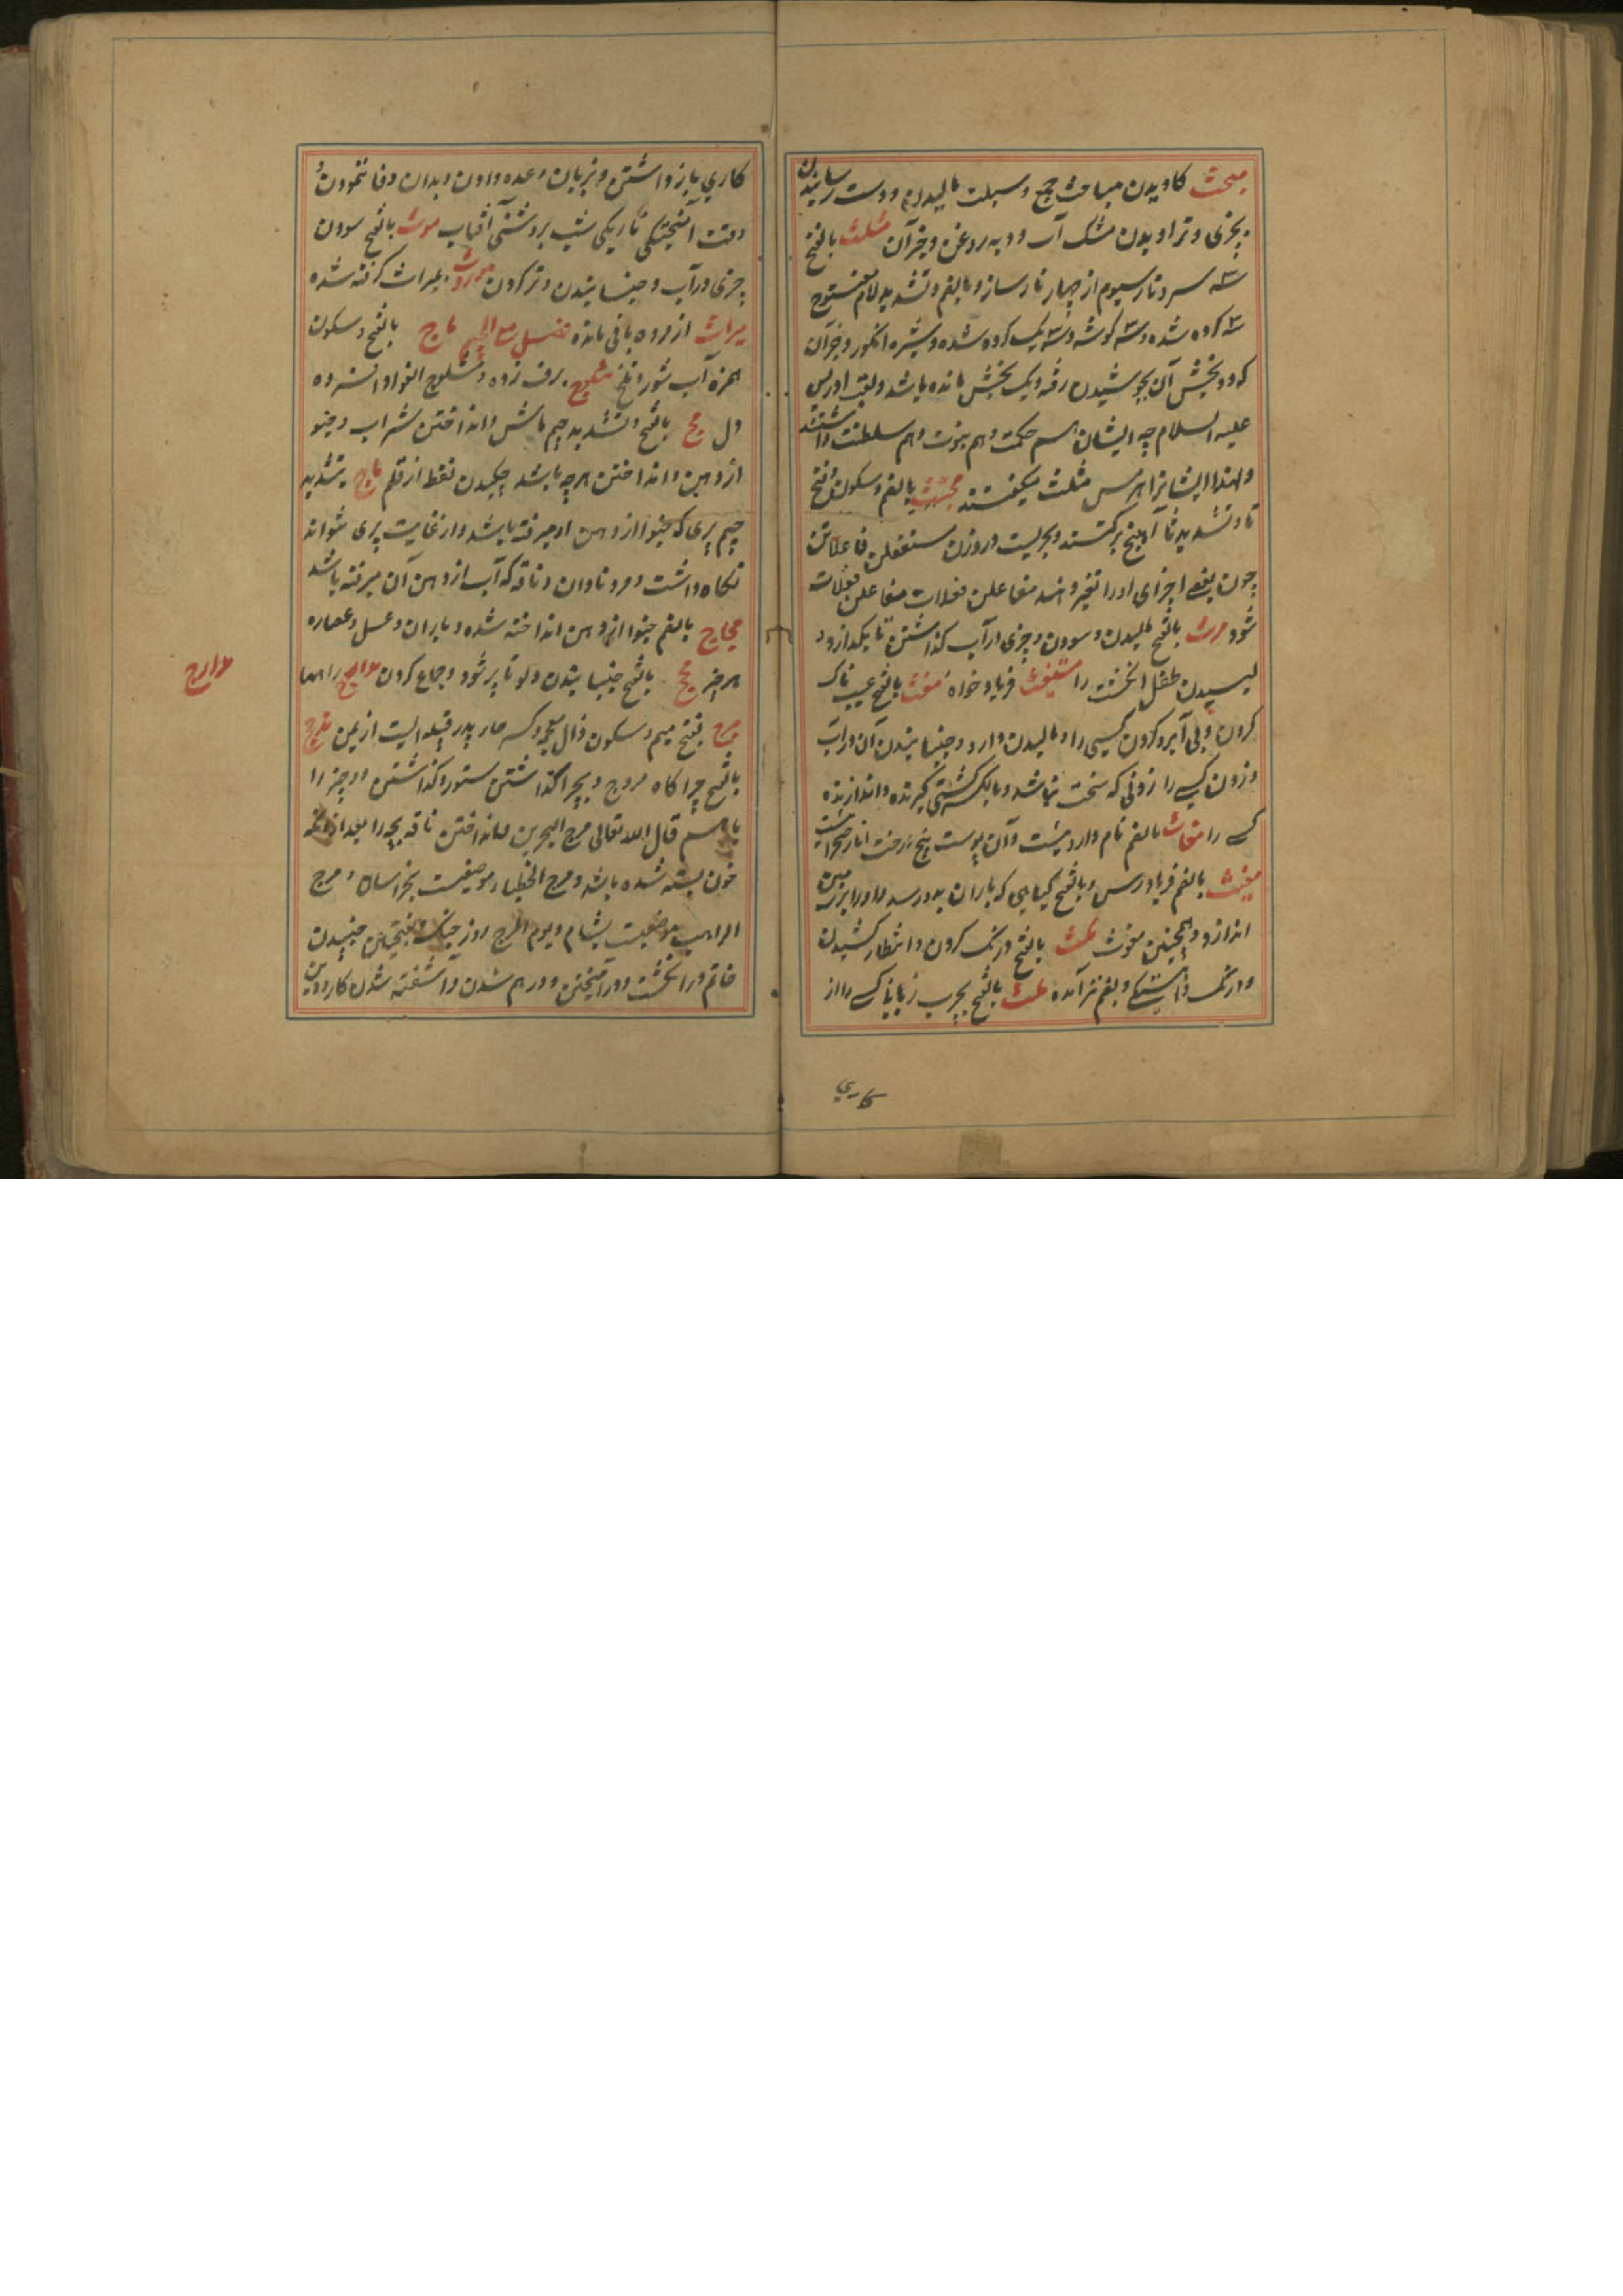 مبحث کاویدن مباحث جمع و سبلت مالیدن و دست رسانیدن
بچیزی و تراویدن مشک آب و دبه روغن و جز آن مثلث بالفتح
سه سرد تار سیوم از چهار تار ساز و بالضم و تشدید لام مفتوح
سه کرده شده و سه گوشه و سه یک کرده شده و شیره انگور و جز آن
که دو بخش آن بجوشیدن رفته و یک بخش مانده باشد و لقب ادریس
علیه السلام چه ایشان هم حکمت و هم نبوت و هم سلطنت داشتند
و لهذا ایشانرا هرمس مثلث میگفتند مجتث بالضم و سکون و فتح
تا و تشدید ثا از بیخ برکنند و بحریست وزن مستفعلن فاعلاتن
چون بعضی اجزای او را تغیر دهند مفاعلن فعلات مفاعلن فعلات
شود مرث بالفتح مالیدن و سودن و چیزی در آب گذاشتن تا بگدازد و
لیسیدن طفل انگشت را مستغیث فریاد خواه مغث بالفتح عیبناک
کردن و بی آبرو کردن کسی را و مالیدن دارو و جنبانیدن آن در آب
و زدن کسی را زدنی که سخت نباشد و بالکسر کشتی گیرنده و اندازنده
کسی را مغاث بالضم نام دارویست و آن پوست بیخ درخت انار صحرائیست
مغیث بالضم فریادرس و بالفتح گیاهی که باران بدو رسد و او را بر زمین
اندازد و همچنین مغوث مکث بالفتح درنگ کردن و انتظار کشیدن
و درنگ و آهستگی و بضم نیز آمده ملث بالفتح بچرب زبانی کسی را از
کاری
کاری باز داشتن و بزبان وعده دادن و بدان وفا ننمودن
وقت آمیختگی تاریکی شب بروشنی آفتاب موث بالفتح سودن
چیزی در آب و جنبانیدن و تر کردن موروث بمیراث گرفته شده
میراث از مرده باقی مانده فصل مع الجیم ماج بالفتح و سکون
همزه آب شور و تلخ مثلوج برف زده و مثلوج الفواد افسرده
دل مج بالفتح و تشدید جیم ماش و انداختن شراب و خیو
از دهن و انداختن هرچه باشد چکیدن نقط از قلم ماج بتشدید
جیم پیری که خیو از دهن او میرفته باشد و از غایت پیری نتواند
نگاه داشت و مرد نادان و ناقه که آب از دهن آن میرفته باشد
مجاج بالضم خیو از دهن انداخته شده و باران و عسل و عصاره
هر چیز مخج بالفتح جنبانیدن دلو تا پر شود و جماع کردن مدالج راهها
مذحج بفتح میم و سکون ذال معجمه و کسر حا پدر قبیله ایست از یمن مرج
بالفتح چراگاه مروج و بچرا گذاشتن ستور و گذاشتن دو چیز را
باهم قال الله تعالی مرج البحرین و انداختن ناقه بچه را بعد از آنکه
خون بسته شده باشد و مرج الخطباء موضعیست بخراسان و مرج
الراهب موضعیست بشام و یوم المرج روز جنگ و بفتحتین جنبیدن
خاتم در انگشت و در آمیختن و درهم شدن و آشفته شدن کار و دین
مدارج